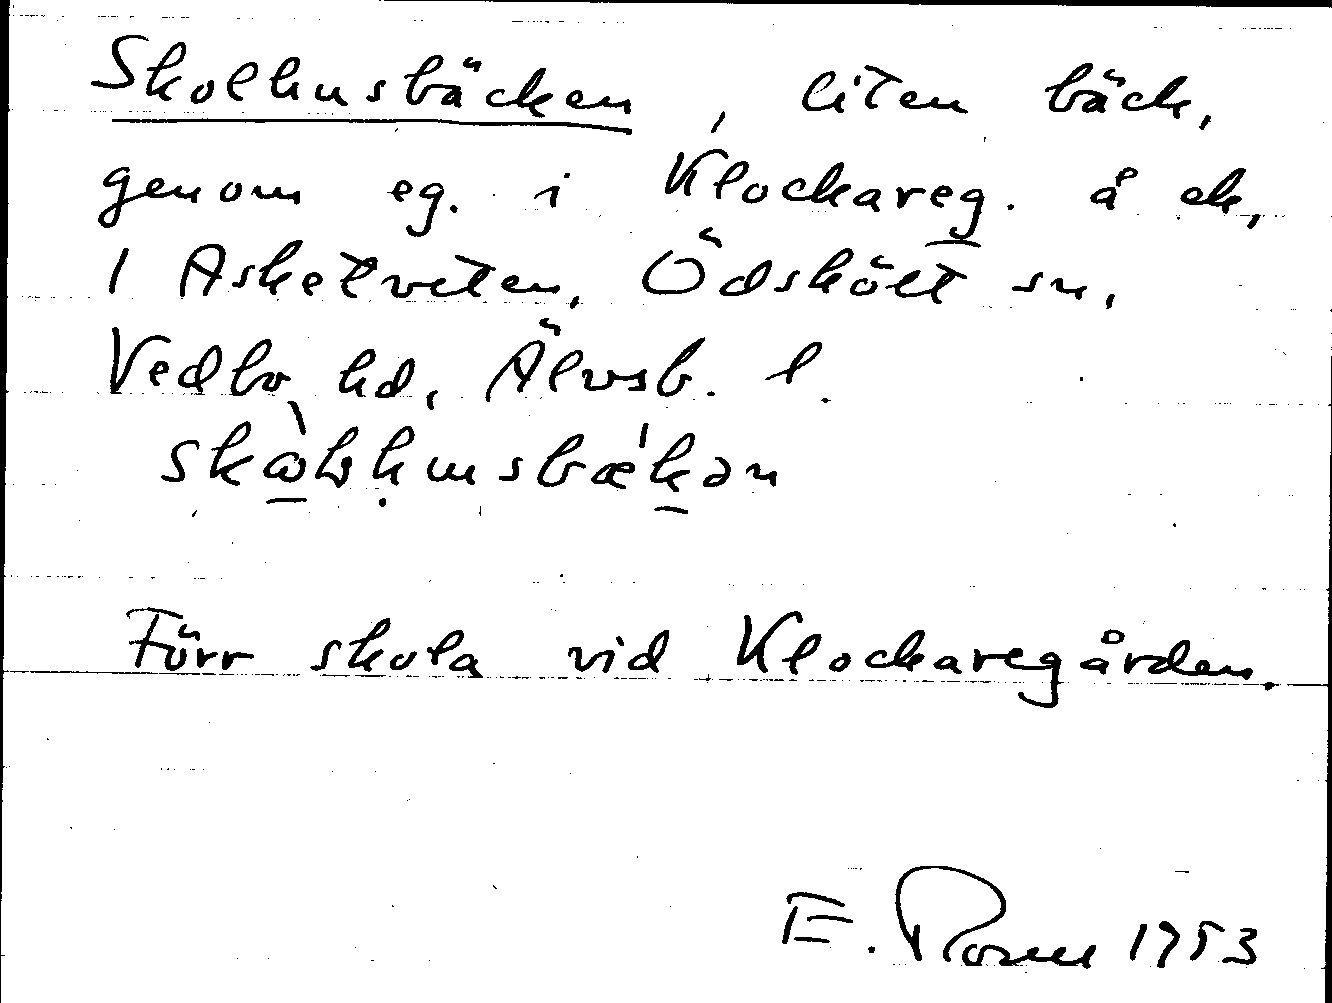 Skolhusbäcken, liten bäck,
genom eg. i Klockareg. å ek,
1 Asketveten, Ödskölt sn,
Vedbo hd, Älvsb. l.
Förr skola vid Klockaregården.
E. 1953